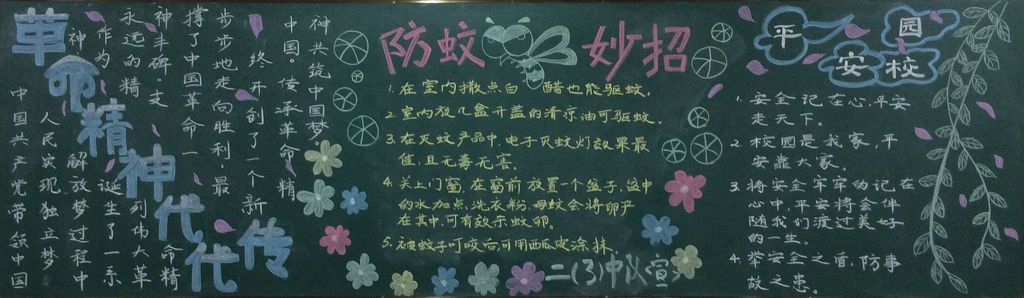 革命精神代代传
中国共产党带领中国
人民实现独立梦
解放梦过程中
诞生了一系
列伟大革
命精
神
作为
永远的精
神丰碑支
撑了中国革命一
步步地走向胜利,最
终开创了一个新
中国。传承革命精
神共筑中国梦。
防蚊妙招
1.在室内撒点白醋也能驱蚊.
2.室内放几盒开盖的清凉油可驱蚊.
3.在灭蚊产品中,电子灭蚊灯效果最
值,且无毒无害.
4.关上门窗,在窗前放置一个盆子,盆中
的水加点洗衣粉,母蚊会将卵产
在其中,可有效杀蚊卵.
5.被蚊子叮咬后可用西瓜皮涂抹.
二(3)中队宣
平安校园
1.安全记在心,平安
走天下.
2.校园是我家,平
安靠大家.
3.将安全牢牢的记在
心中,平安将会伴
随我们渡过美好
的一生.
4.举安全之盾,防事
故之患.